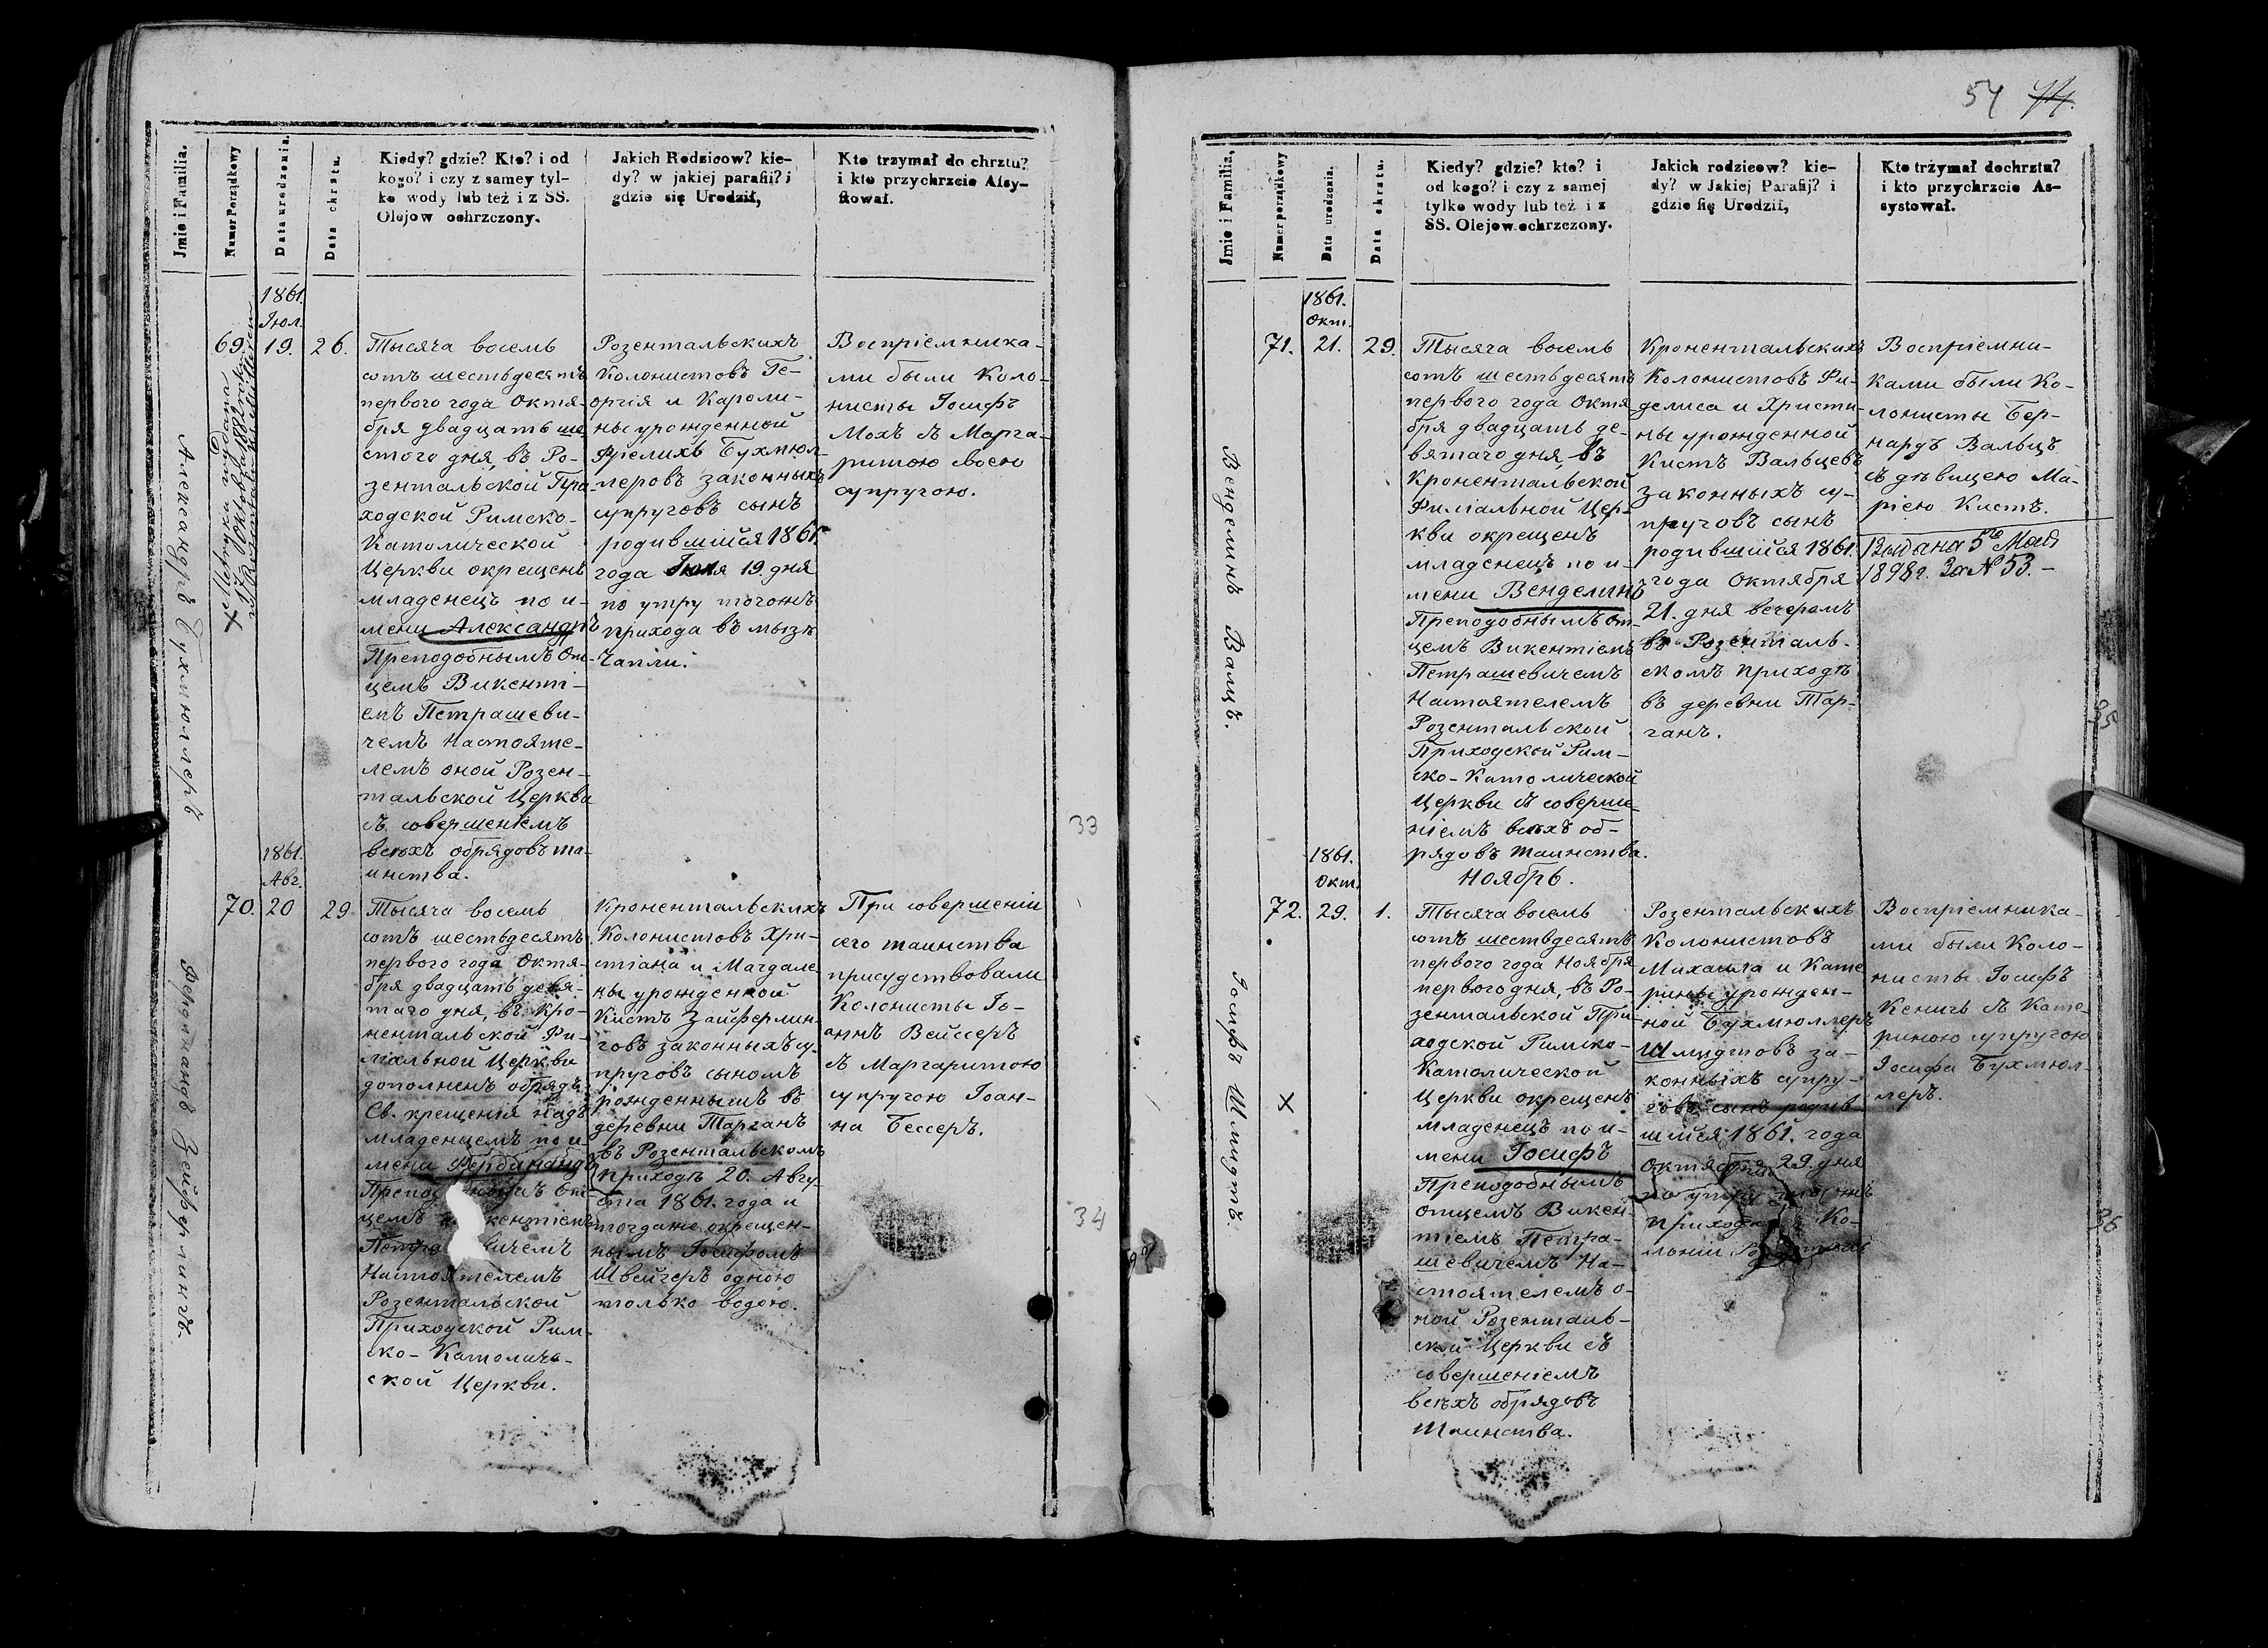 54 44.
Jmie i Familia.
Numer Porządkowy
Data urodzenia.
Data chrztu.
Kiedy? gdzie? Kto? i od
kogo? i czy z samey tyl-
ko wody lub też i z SS.
Olejow ochrzczony.
Jakich Rodzicow? kie-
dy? w jakiej parafii? i
gdzie się Urodził,
Kto trzymał do chrztu?
i kto przychrzcie Assy-
stował.
Александръ Бухмюллеръ
1861.
Іюл.
69. 19. 26.
Метрика выдана
17 Октября 1882
Тысяча восемь
сотъ шестьдесятъ
первого года Октя-
бря двадцать ше
стого дня, въ Ро-
зентальской При-
ходской Римско-
Католической
Церкви окрещенъ
младенецъ по и-
мени Александръ
Преподобнымъ От-
цемъ Викенті-
емъ Петрашеви-
чемъ Настояте-
лемъ оной Розен-
тальской Церкви
съ совершеніемъ
всѣхъ обрядовъ та-
инства.
Розентальскихъ
Колонистовъ Ге-
оргія и Кароли-
ны урожденной
Фрелихъ Бухмюл-
леровъ законныхъ
супруговъ сынъ
родившійся 1861.
года Іюля 19. дня
по утру тогожъ
прихода въ мызѣ
Чапли.
Воспріемника-
ми были Коло-
нисты Іосифъ
Мохъ съ Марга-
ритою своею
супругою.
Фердинандъ Зейферлингъ.
1861.
Авг.
70. 20 29
Тысяча восемь
сотъ шестьдесятъ
первого года Октя-
бря двадцать девя-
таго дня, въ Кро-
нентальской Фи-
ліальной Церкви
дополненъ обрядъ
Св. крещенія надъ
младенцемъ по и-
мени Фердинандъ
От-
цемъ
Настоятелемъ
Розентальской
Приходской Рим-
ско-Католиче-
ской Церкви.
Кронентальскихъ
Колонистовъ Хри-
стіана и Магдале
ны урожденной
Кистъ Зайферлин-
говъ законныхъ су-
пруговъ сыномъ
рожденнымъ въ
деревни Тарганъ
въ Розентальскомъ
приходѣ 20. Авгу-
ста 1861. года и
тогдаже окрещен-
нымъ Іосифомъ
Швейгеръ одною
только водою.
При совершеніи
сего таинства
присудствовали
Колонисты Іо-
аннъ Вейсеръ
съ Маргаритою
супругою Іоан-
на Бессеръ.
33
34
Jmie i Familia,
Numer porządkowy
Data urodzenia.
Data chrztu.
Kiedy? gdzie? kto? i
od kogo? i czy z samej
tylko wody lub też i z
SS. Olejow ochrzczony.
Jakich rodzicow? kie-
dy? w Jakiej Parafij? i
gdzie się Urodził,
Kto trzymał dochrztu?
i kto przychrzcie As-
systował.
Венделинъ Валцъ.
1861.
Окт.
71. 21. 29.
Тысяча восемь
сотъ шестьдесятъ
первого года Октя
бря двадцать де-
вятаго дня, въ
Кронентальской
Филіальной Цер-
кви окрещенъ
младенецъ по и-
мени Венделинъ
Преподобнымъ От-
цемъ Викентіемъ
Петрашевичемъ
Настоятелемъ
Розентальской
Приходской Рим-
ско-Католической
Церкви съ соверше-
ніемъ всѣхъ об-
рядовъ таинства.
Кронентальскихъ
Колонистовъ Фи-
делиса и Христи-
ны урожденной
Кистъ Вальцевъ
законныхъ су-
пруговъ сынъ
родившійся 1861.
года Октября
21. дня вечеромъ
въ Розенталь-
скомъ приходѣ
въ деревни Тар-
ганъ.
Воспріемни-
ками были Ко-
лонисты Бер-
нардъ Вальцъ
съ дѣвицею Ма-
ріею Кистъ.
Выдана 5го Мая
1898г. За № 53.-
Іосифъ Шмидтъ.
1861.
Окт.
Ноябрь.
72. 29. 1.
Тысяча восемь
сотъ шестьдесятъ
первого года Ноября
первого дня, въ Ро-
зентальской При-
ходской Римско-
Католической
Церкви окрещенъ
младенецъ по и-
мени Іосифъ
Преподобнымъ
отцемъ Викен-
тіемъ Петра-
шевичемъ На-
стоятелемъ о-
ной Розенталь-
ской Церкви съ
совершеніемъ
всѣхъ обрядовъ
Таинства.
Розентальскихъ
Колонистовъ
Михаила и Кате
рины урожден-
ной Бухмюллеръ
Шмидтовъ за-
конныхъ супру-
говъ сынъ родив-
шійся 1861. года
Октября 29. дня
по утру
Ко-
лоніи
Воспріемника-
ми были Коло-
нисты Іосифъ
Кенигъ съ Кате-
риною супругою
Іосифа Бухмюл-
леръ.
35
36